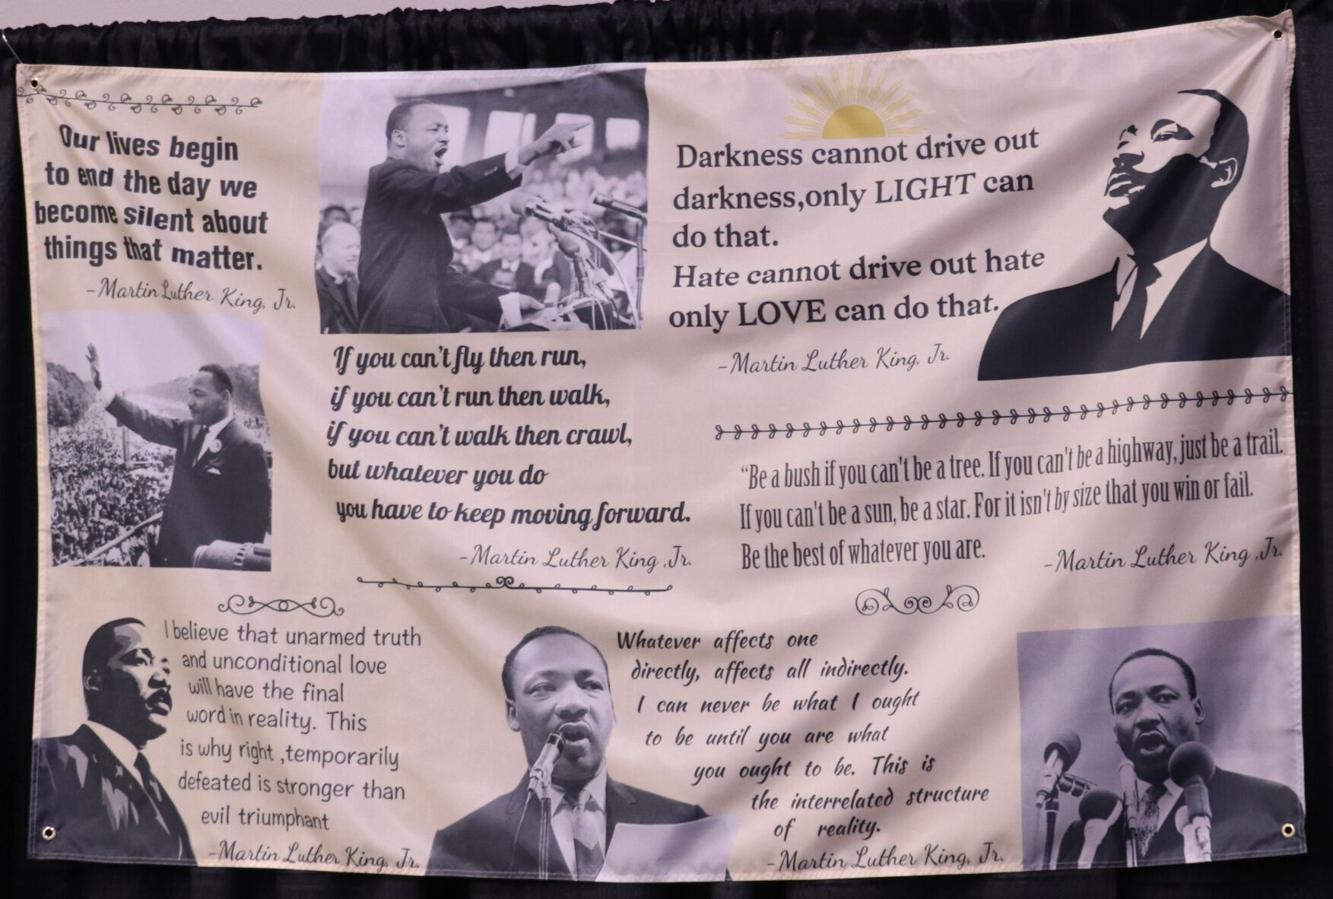 Our lives begin
to end the day we
become silent about
things that matter.
-Martin Luther King, Jr.
If you can't fly then run,
if you can't run then walk,
if you can't walk then crawl,
but whatever you do
you have to keep moving forward.
-Martin Luther King ,Jr.
Darkness cannot drive out
darkness,only LIGHT can
do that.
Hate cannot drive out hate
only LOVE can do that.
-Martin Luther King, Jr.
“Be a bush if you can't be a tree. If you can't be a highway, just be a trail.
If you can't be a sun, be a star. For it isn't by size that you win or fail.
Be the best of whatever you are.
-Martin Luther King ,Jr.
I believe that unarmed truth
and unconditional love
will have the final
word in reality. This
is why right ,temporarily
defeated is stronger than
evil triumphant
-Martin Luther King, Jr.
Whatever affects one
directly, affects all indirectly.
I can never be what I ought
to be until you are what
you ought to be. This is
the interrelated structure
of reality.
-Martin Luther King, Jr.